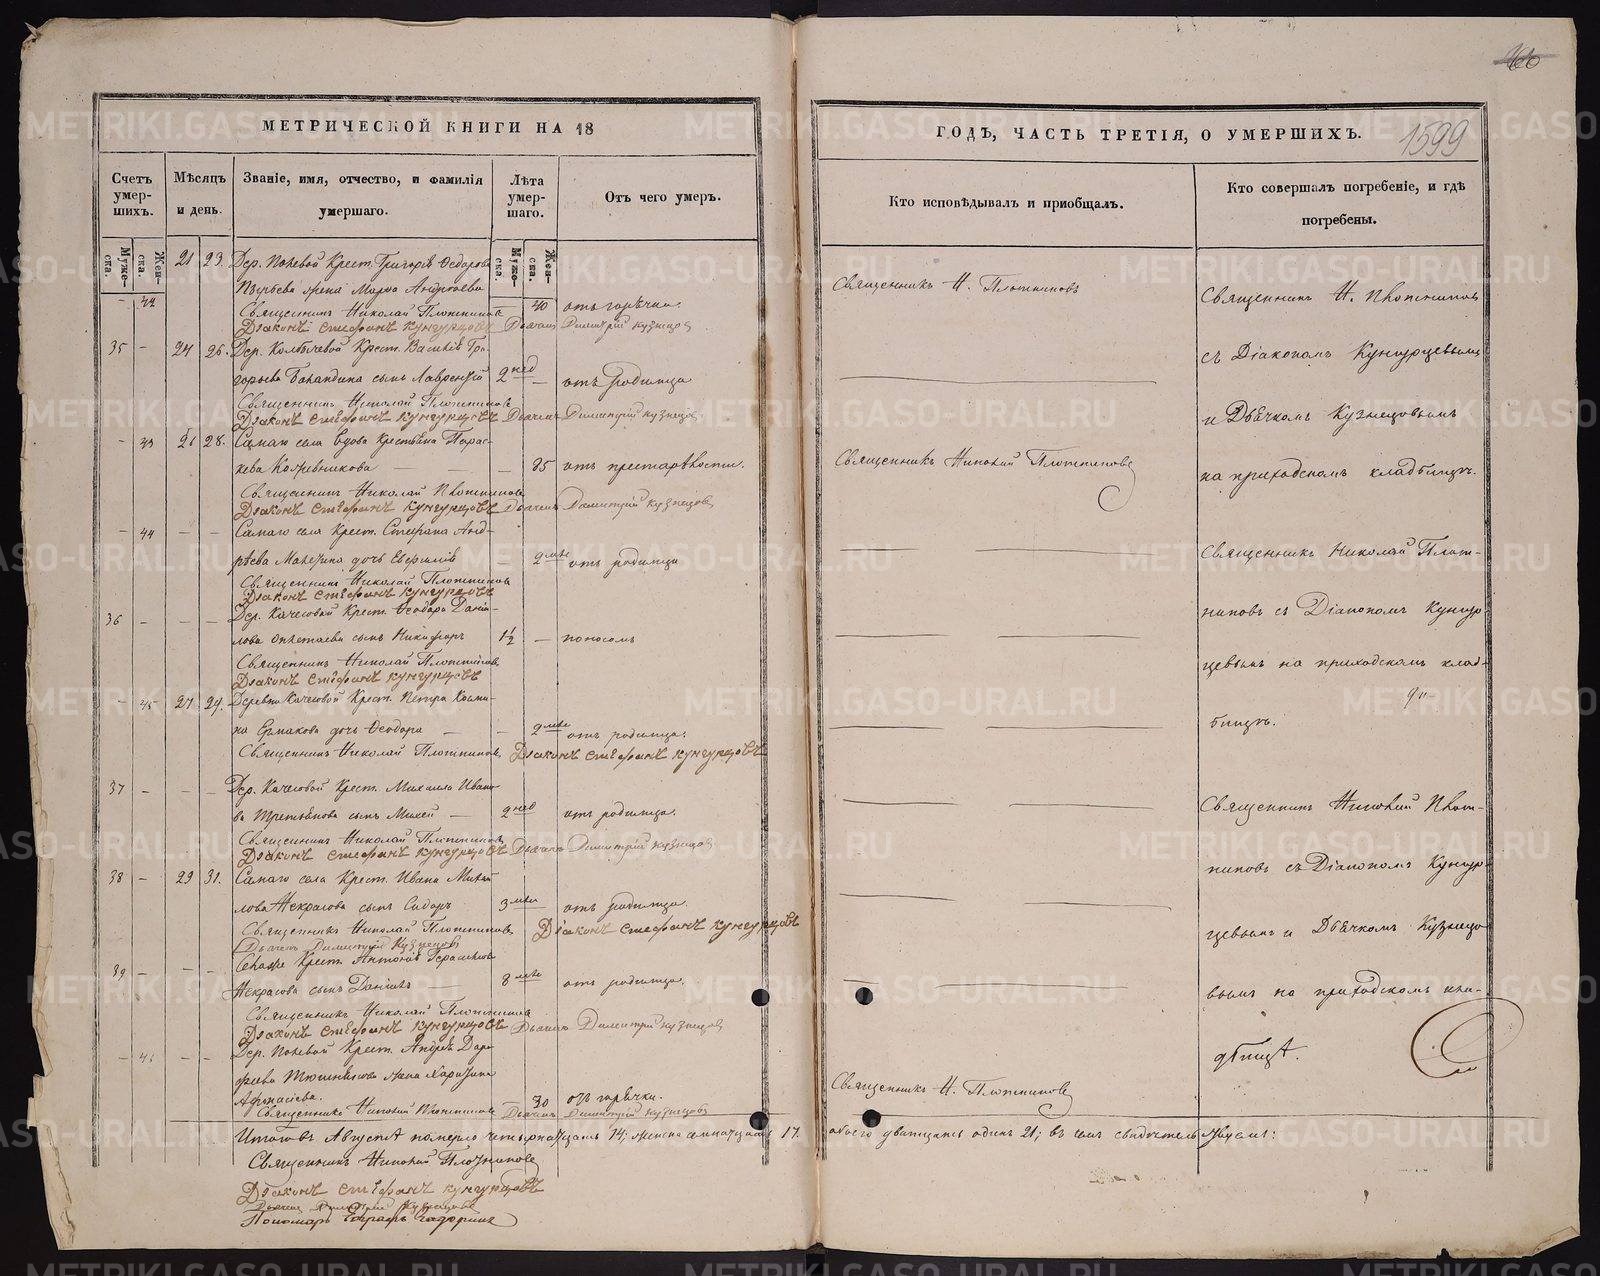 МЕТРИЧЕСКОЙ КНИГИ НА 18
Счетъ умер- шихъ.
Муже- ска.
Жен- ска.
Мѣсяцъ и день.
Званіе, имя, отчество, и фамилія умершаго.
Лѣта умер- шаго.
Муже- ска.
Жен- ска.
Отъ чего умеръ.
21 23. Дер. Полевой Крест. Григорія Ѳедорова
жена Марѳа Андреева
42 40 отъ горячки.
Священникъ Николай Плотниковъ
Діаконъ Стефанъ Кунгурцовъ Дьячекъ Димитрій Кузнецов
35 - 24 26. Дер. Крест. Василія Гри-
горьева сынъ Лаврентій 2 нед - отъ родимца
Священникъ Николай Плотниковъ
Діаконъ Стефанъ Кунгурцовъ Дьячекъ Димитрій Кузнецов.
- 43 26 28. Самаго села вдова Крестьянка Парас-
кева Кожевникова - 85 отъ престарѣлости.
Священникъ Николай Плотниковъ
Діаконъ Стефанъ Кунгурцовъ Дьячекъ Димитрій Кузнецовъ
- 44 - - Самаго села Крест. Стефана Анд-
рѣева дочь Евфимія - 2 мѣс отъ родимца
Священникъ Николай Плотниковъ
Діаконъ Стефанъ Кунгурцовъ
36 - - - Дер. Качесовой Крест. Ѳеодора Даніи-
лова сынъ Никифоръ 1½ - поносомъ
Священникъ Николай Плотниковъ
Діаконъ Стефанъ Кунгурцовъ
- 45 27 29. Деревни Качесовой Крест. Петра Козьми-
на Ермакова дочь Ѳеодора - 2 мѣс отъ родимца.
Священникъ Николай Плотниковъ Діаконъ Стефанъ Кунгурцовъ
37 - - - Дер. Качесовой Крест. Михаила Ивано-
ва Третьякова сынъ Михей - 2 нед отъ родимца.
Священникъ Николай Плотниковъ
Діаконъ Стефанъ Кунгурцовъ Дьячекъ Димитрій Кузнецов
38 - 29 31. Самаго села Крест. Ивана Михай-
лова Некрасова сынъ Сидоръ 3 мѣс отъ родимца.
Священникъ Николай Плотниковъ Діаконъ Стефанъ Кунгурцовъ
Дьячекъ Димитрій Кузнецовъ
39 - - - Крест. Антонія Герасимова
Некрасова сынъ Даніилъ 8 мѣс отъ родимца.
Священникъ Николай Плотниковъ
Діаконъ Стефанъ Кунгурцовъ Дьячекъ Димитрій Кузнецов
- 46 - - Дер. Полевой Крест. Андрея Доро-
феева жена Харитина
Афанасіева. 30 отъ горячки.
Священникъ Николай Плотниковъ Дьячекъ Димитрій Кузнецовъ
Итого въ Августѣ померло четырнадцать 14; женска семнадцать 17.
Священникъ Николай Плотниковъ
Діаконъ Стефанъ Кунгурцовъ
Дьячекъ Димитрій Кузнецовъ
Пономарь
1599
ГОДЪ, ЧАСТЬ ТРЕТІЯ, О УМЕРШИХЪ.
Кто исповѣдывалъ и пріобщалъ.
Кто совершалъ погребеніе, и гдѣ погребены.
Священникъ Н. Плотниковъ
Священникъ Н. Плотниковъ
съ Діакономъ Кунгурцевымъ
и Дьячкомъ Кузнецовымъ
Священникъ Николай Плотниковъ
на приходскомъ кладбищѣ.
Священникъ Николай Плот-
никовъ съ Діакономъ Кунгур-
цевымъ на приходскомъ клад-
бищѣ.
Священникъ Николай Плот-
никовъ съ Діакономъ Кунгур-
цевымъ и Дьячкомъ Кузнецо-
вымъ на приходскомъ кла-
дбищѣ.
Священникъ Н. Плотниковъ
обоего двадцать одинъ 21; въ семъ свидѣтельствуемъ:
METRIKI.GASO-URAL.RU